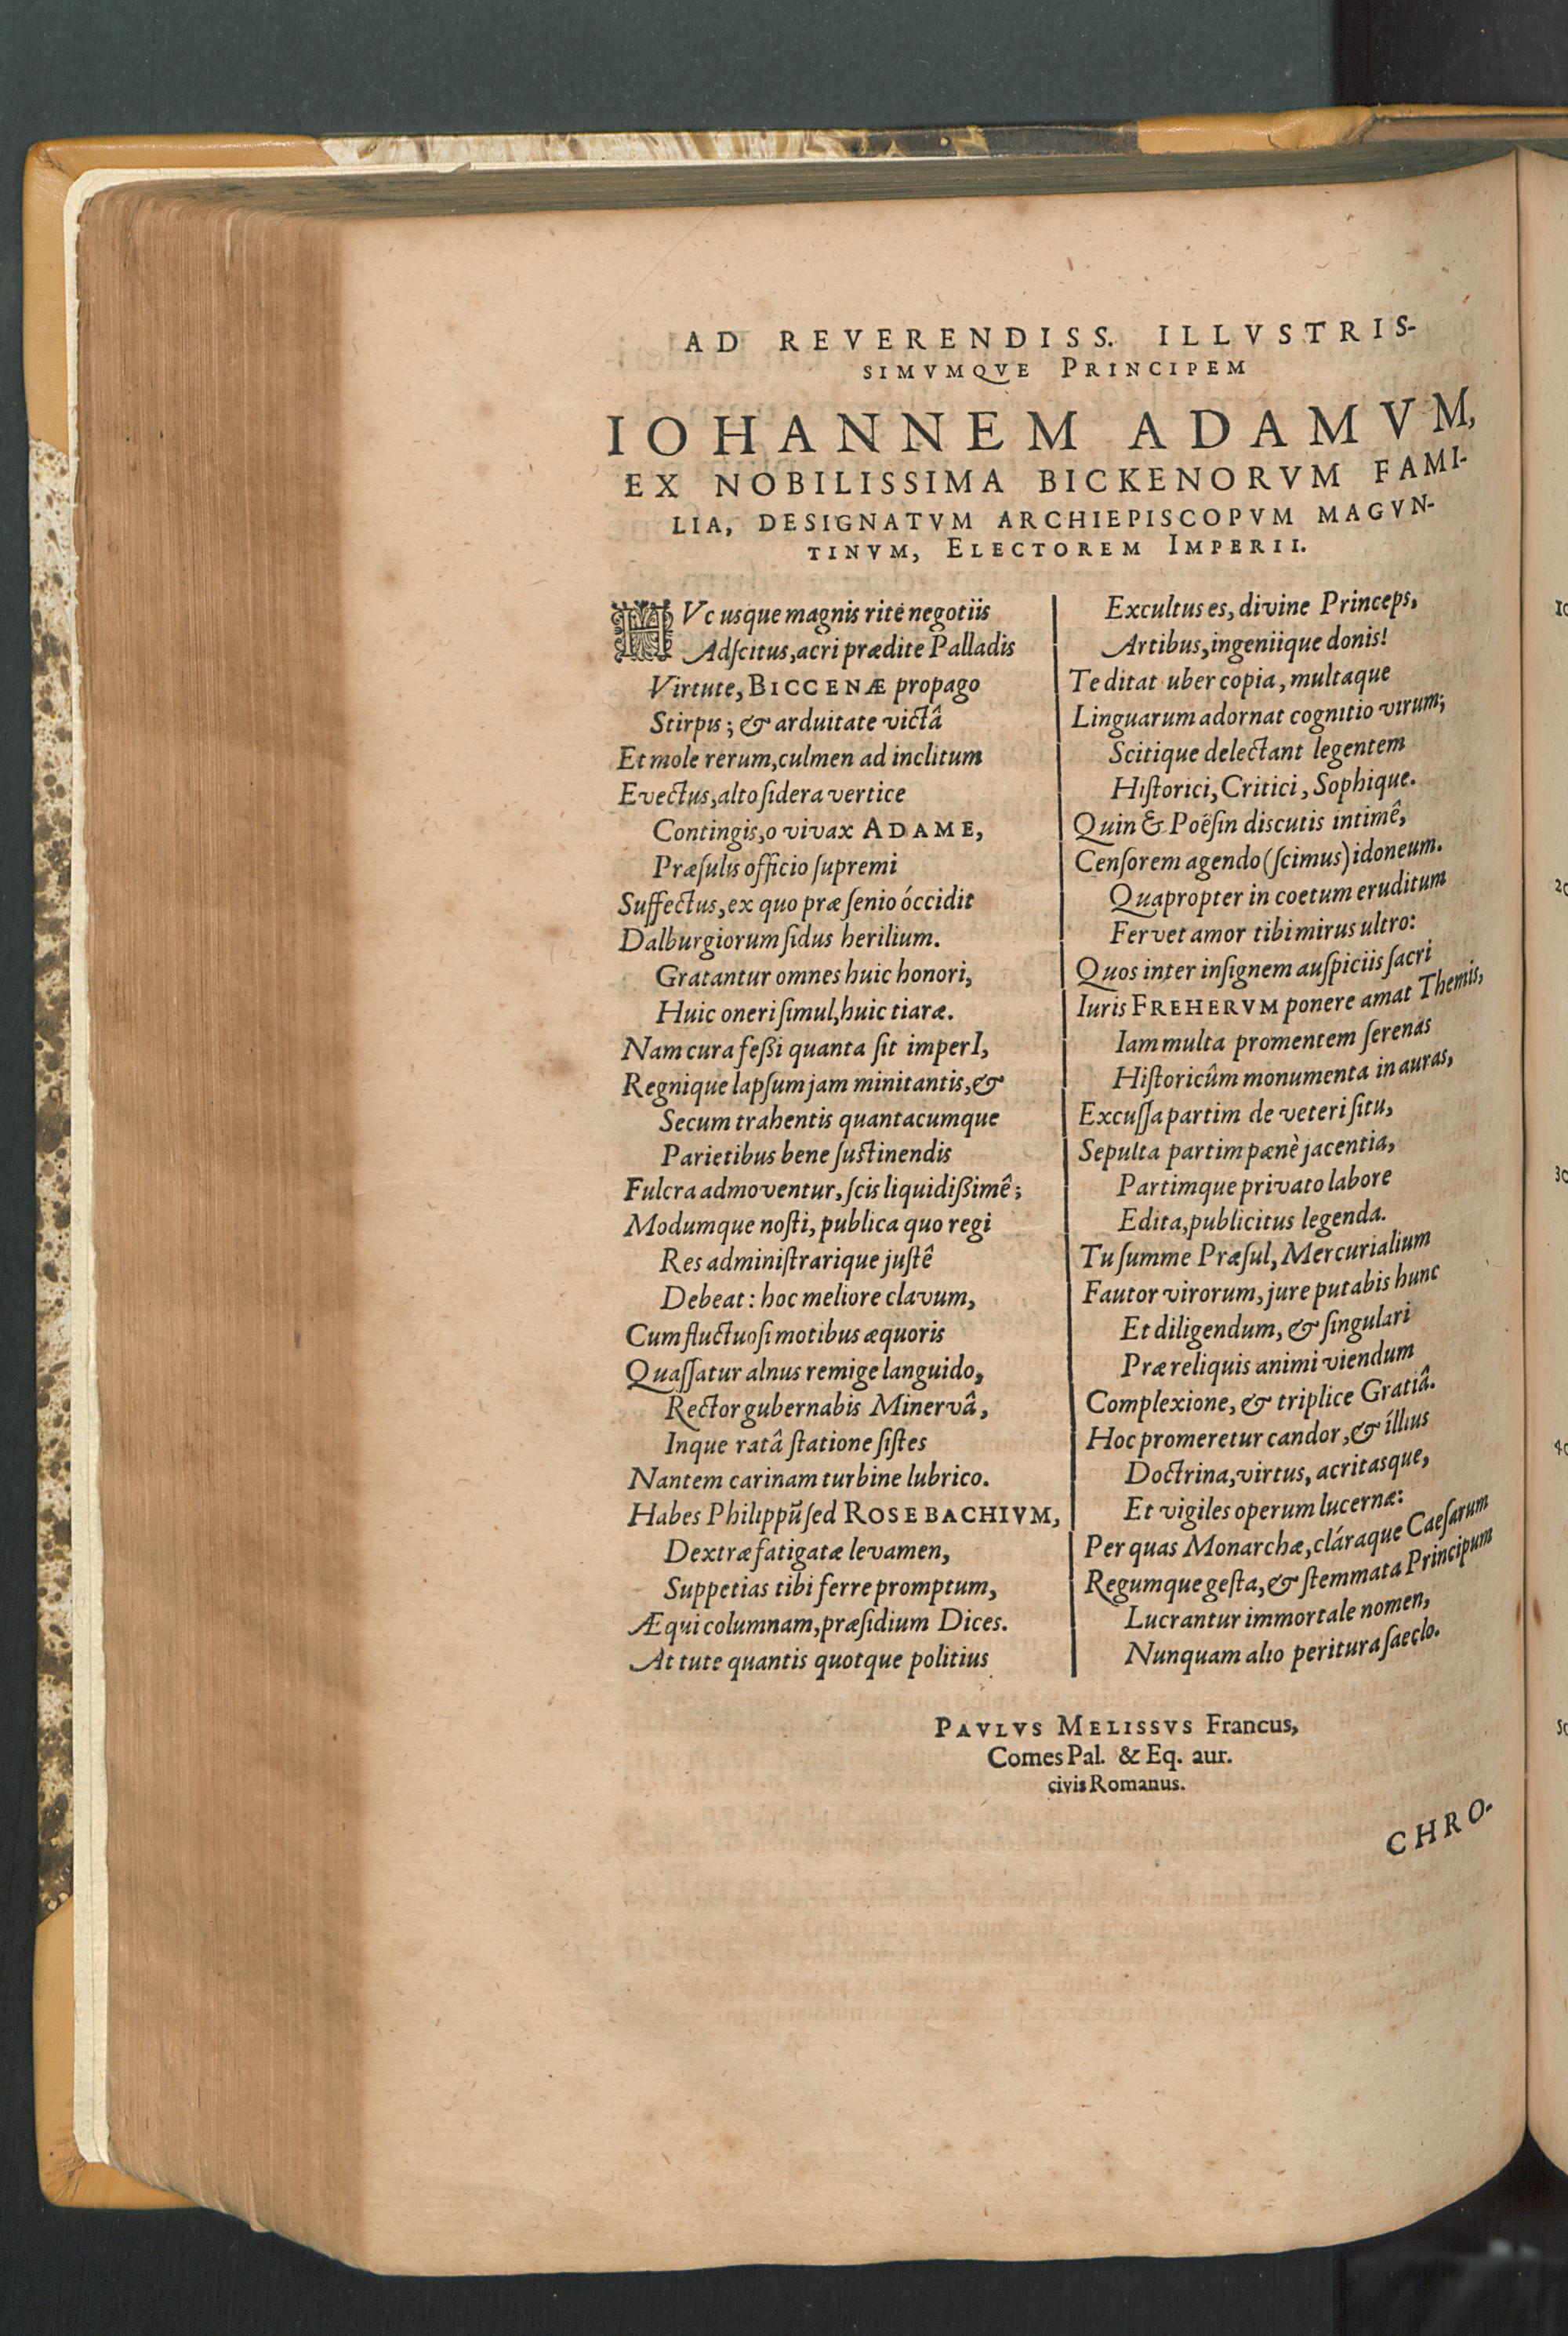 AD REVERENDISS. ILLVSTRIS-
SIMVMQVE PRINCIPEM
IOHANNEM ADAMVM,
EX NOBILISSIMA BICKENORVM FAMI-
LIA, DESIGNATVM ARCHIEPISCOPVM MAGVN-
TINVM, ELECTOREM IMPERII.
HVc usque magnis rite negotiis
Adſcitus, acri prædite Palladis
Virtute, BICCENÆ propago
Stirpis; & arduitate victâ
Et mole rerum, culmen ad inclitum
Evectus, alto ſidera vertice
Contingis, o vivax ADAME,
Præſulis officio ſupremi
Suffectus, ex quo præ ſenio óccidit
Dalburgiorum ſidus herilium.
Gratantur omnes huic honori,
Huic oneri ſimul, huic tiaræ.
Nam cura feßi quanta ſit imperI,
Regnique lapſum jam minitantis, &
Secum trahentis quantacumque
Parietibus bene ſustinendis
Fulcra admoventur, ſcis liquidißimê;
Modumque noſti, publica quo regi
Res adminiſtrarique juſtê
Debeat: hoc meliore clavum,
Cum fluctuoſi motibus æquoris
Quaſſatur alnus remige languido,
Rector gubernabis Minervâ,
Inque ratâ ſtatione ſiſtes
Nantem carinam turbine lubrico.
Habes Philippū ſed ROSEBACHIVM,
Dextræ fatigatæ levamen,
Suppetias tibi ferre promptum,
Æqui columnam, præſidium Dices.
At tute quantis quotque politius
Excultus es, divine Princeps,
Artibus, ingeniique donis!
Te ditat uber copia, multaque
Linguarum adornat cognitio virum;
Scitique delectant legentem
Hiſtorici, Critici, Sophique.
Quin & Poëſin discutis intimê,
Cenſorem agendo (ſcimus) idoneum.
Quapropter in coetum eruditum
Fervet amor tibi mirus ultro:
Quos inter inſignem auſpiciis ſacri
Iuris FREHERVM ponere amat Themis,
Iam multa promentem ſerenas
Hiſtoricûm monumenta in auras,
Excuſſa partim de veteri ſitu,
Sepulta partim pænè jacentia,
Partimque privato labore
Edita, publicitus legenda.
Tu ſumme Præſul, Mercurialium
Fautor virorum, jure putabis hunc
Et diligendum, & ſingulari
Præ reliquis animi viendum
Complexione, & triplice Gratiâ.
Hoc promeretur candor, & íllius
Doctrina, virtus, acritasque,
Et vigiles operum lucernæ:
Per quas Monarchæ, cláraque Caeſarum
Regumque geſta, & ſtemmata Principum
Lucrantur immortale nomen,
Nunquam alio peritura ſaeclo.
PAVLVS MELISSVS Francus,
Comes Pal. & Eq. aur.
civis Romanus.
CHRO-